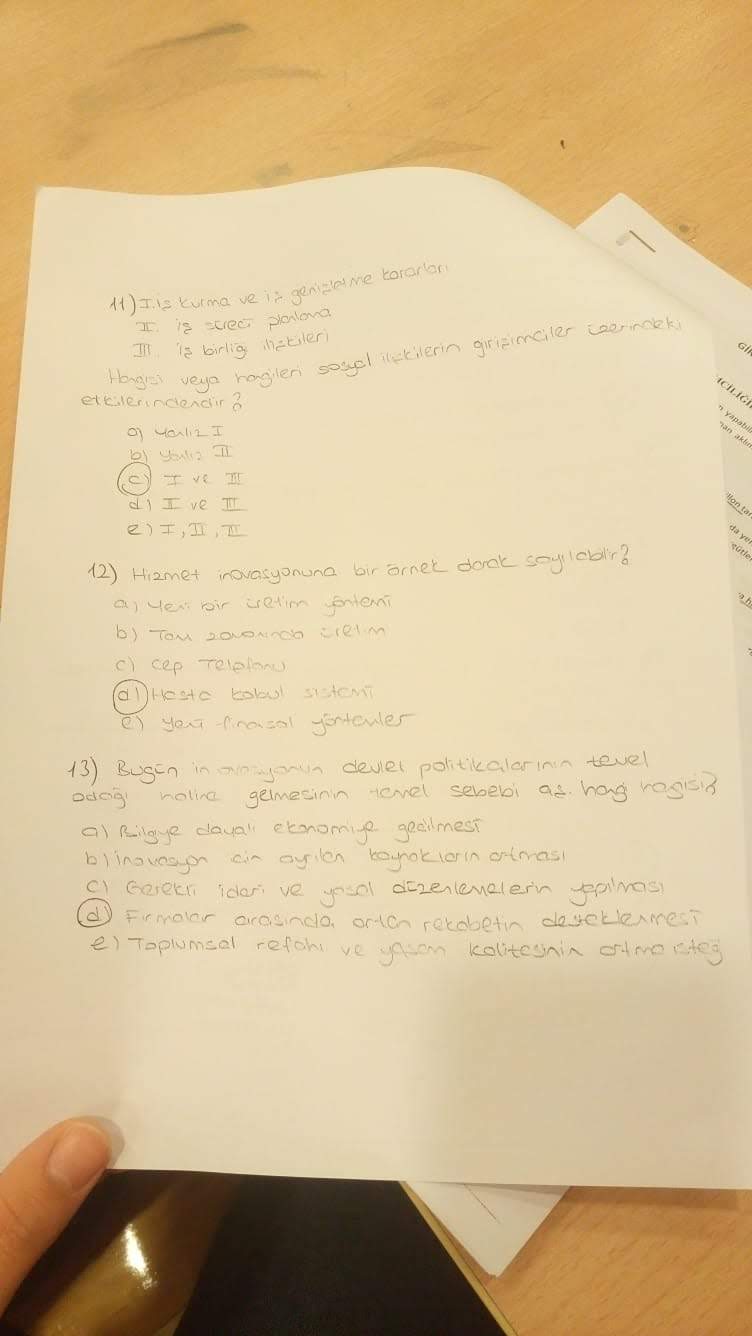 11) I. iş kurma ve iş genişletme kararları
II. iş süreci planlama
III. iş birliği ilişkileri
Hangisi veya hangileri sosyal ilişkilerin girişimciler üzerindeki
etkilerindendir?
a) Yalnız I
b) Yalnız II
c) I ve III
d) II ve III
e) I, II, III
12) Hizmet inovasyonuna bir örnek olarak sayılabilir?
a) Yeni bir üretim yöntemi
b) Tam zamanında üretim
c) Cep Telefonu
d) Hasta kabul sistemi
e) Yeni finasal yöntemler
13) Bugün inovasyonun devlet politikalarının temel
odağı haline gelmesinin temel sebebi aş. hangi hangisi?
a) Bilgiye dayalı ekonomiye geçilmesi
b) inovasyon için ayrılan kaynakların artması
c) Gerekli idari ve yasal düzenlemelerin yapılması
d) Firmalar arasında artan rekabetin desteklenmesi
e) Toplumsal refahı ve yaşam kalitesinin artma isteği